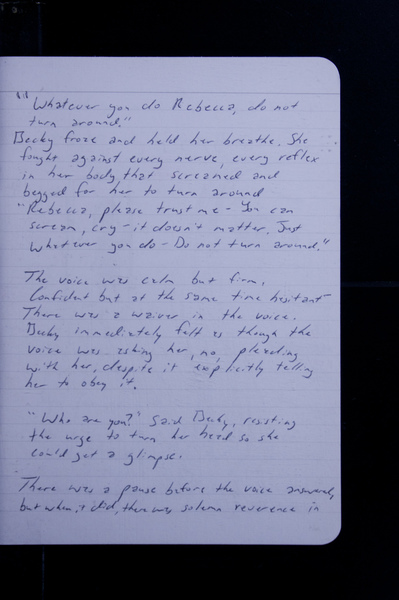 "Whatever you do Rebecca, do not
turn around."
Becky froze and held her breathe. She
fought against every nerve, every reflex
in her body that screamed and
begged for her to turn around
"Rebecca, please trust me - You can
scream, cry - it doesn't matter. Just
whatever you do - Do not turn around."
The voice was calm but firm,
Confident but at the same time hesitant
There was a waiver in the voice.
Becky immediately felt as though the
voice was asking her, no, pleading
with her, despite it explicitly telling
her to obey it.
"Who are you?" Said Becky, resisting
the urge to turn her head so she
could get a glimpse.
There was a pause before the voice answered,
but when it did, there was solemn reverence in